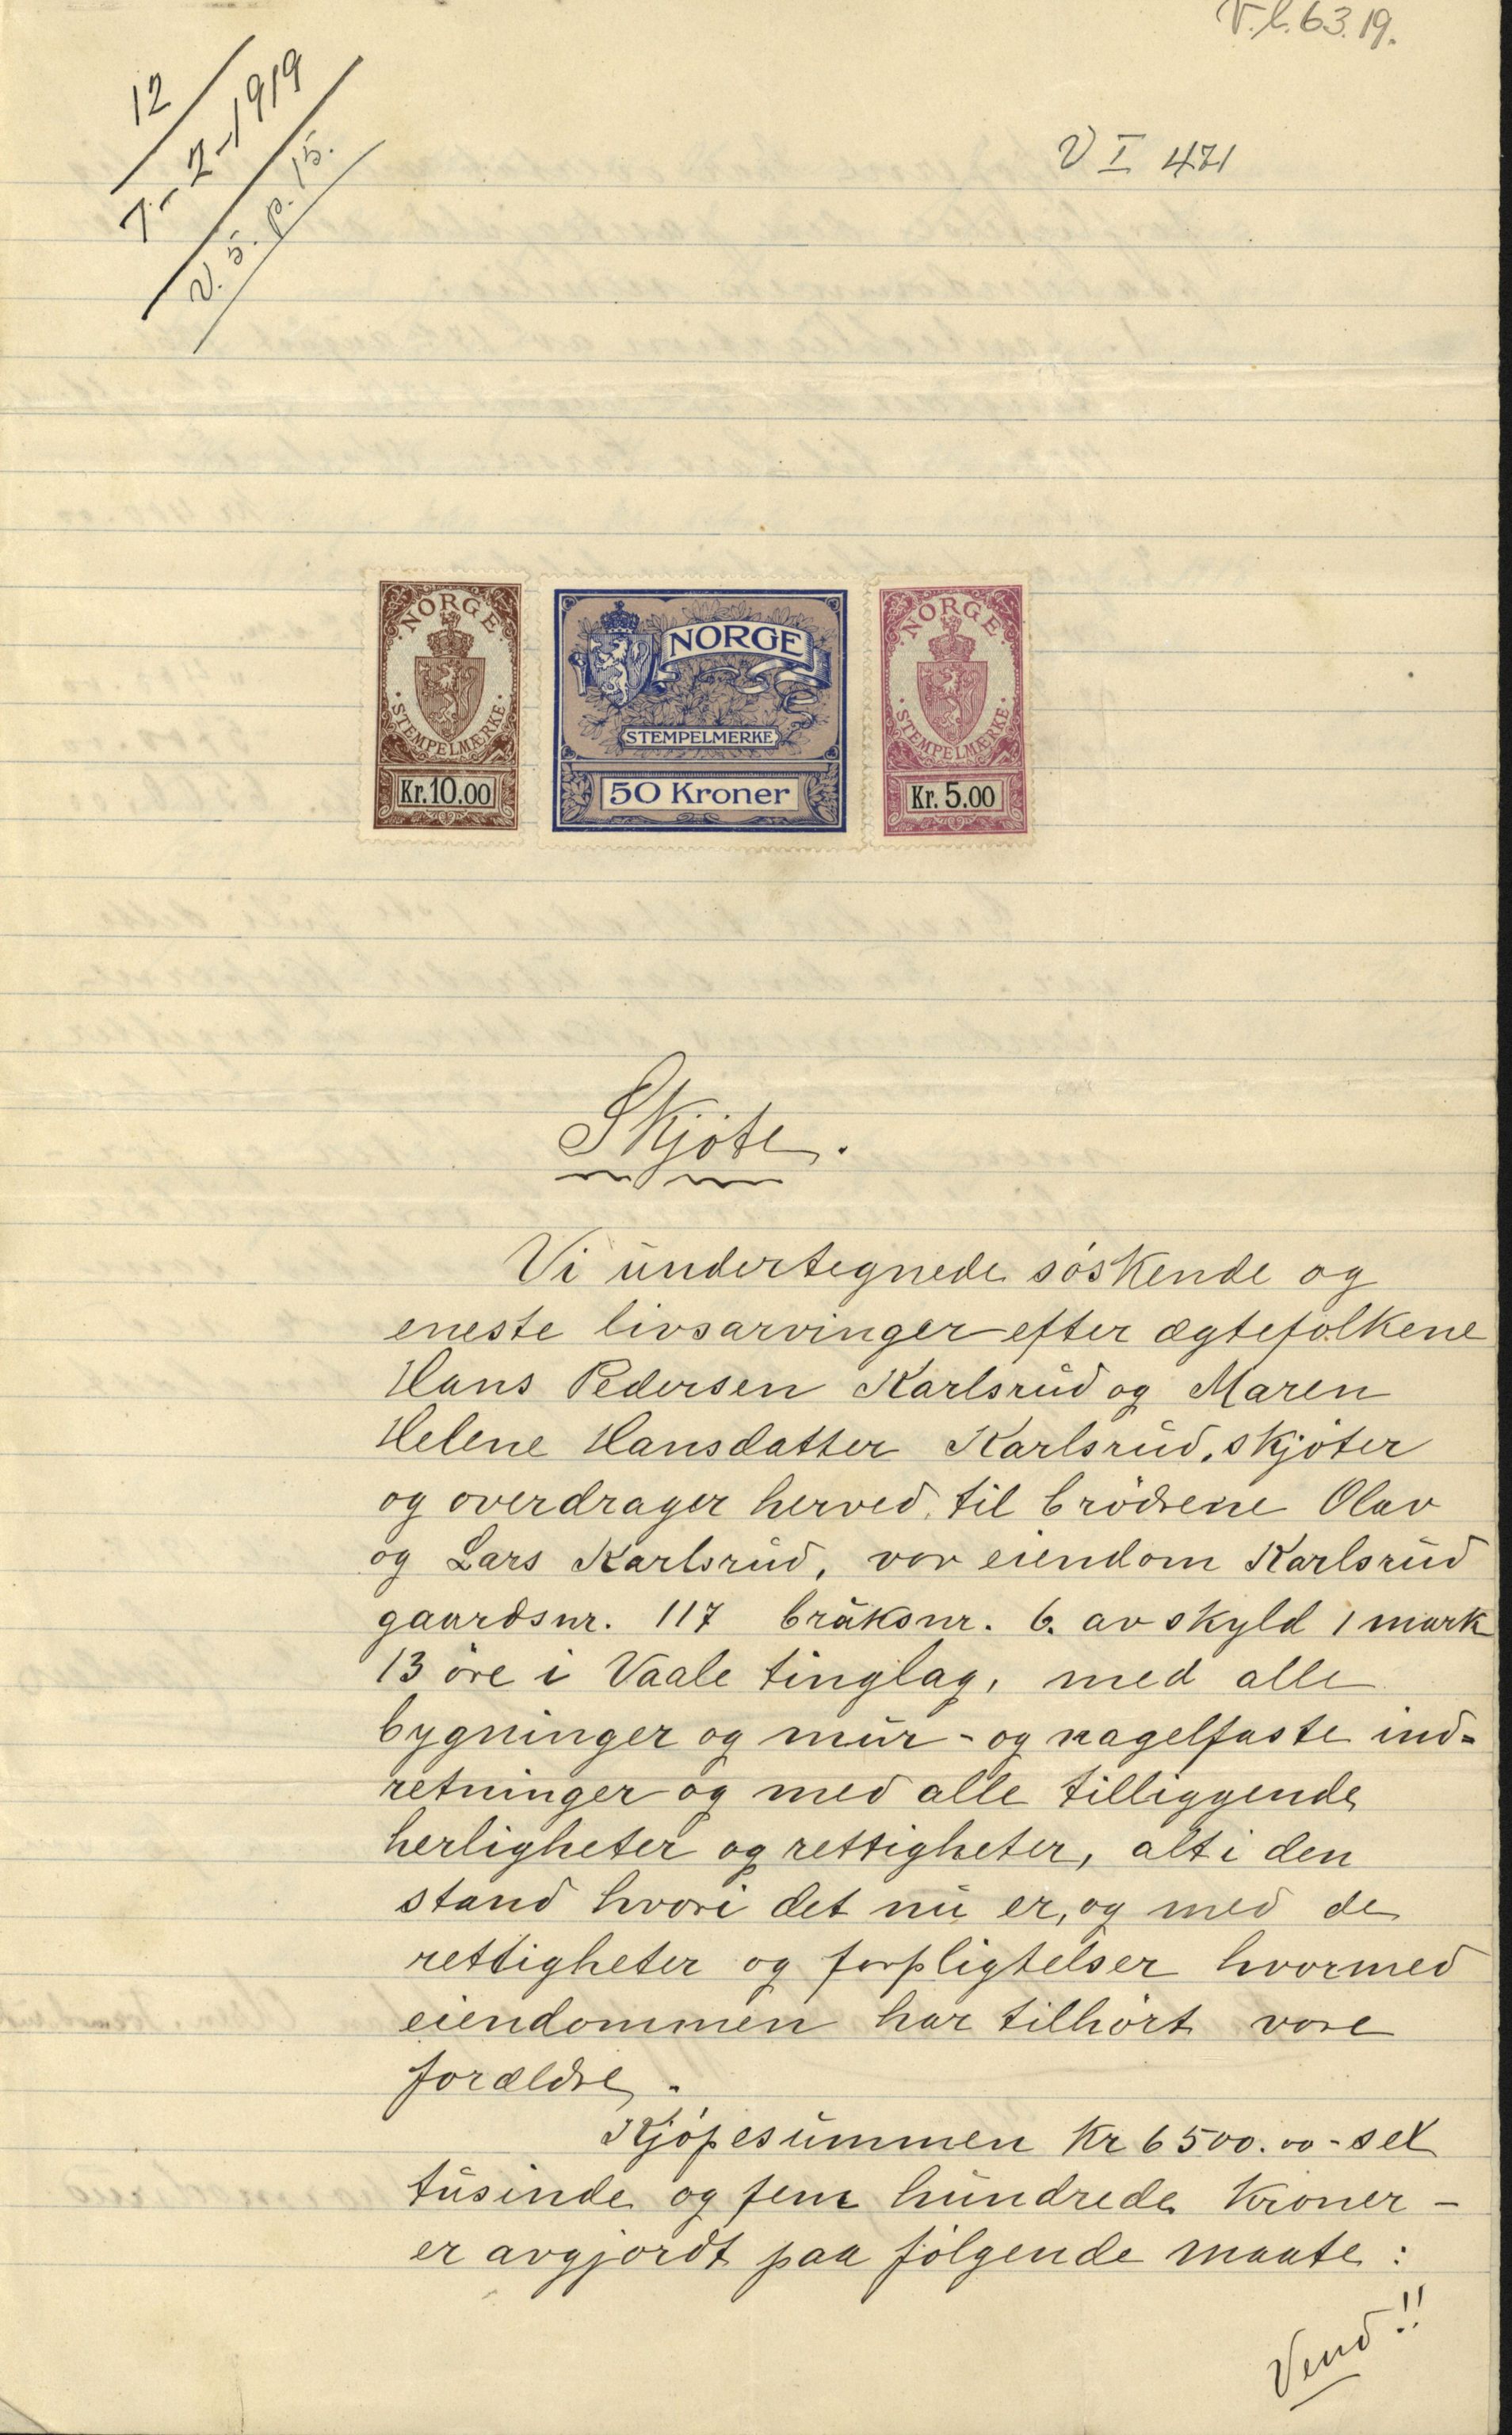 V.l.63.19.
12
7-2-1919
V. 5. p. 15.
V I 471
NORGE
STEMPELMÆRKE
Kr.10.00
NORGE
STEMPELMERKE
50 Kroner
NORGE
STEMPELMÆRKE
Kr. 5.00
Skjöte.
Vi undertegnede søskende og
eneste livsarvinger efter ægtefolkene
Hans Pedersen Karlsrud og Maren
Helene Hansdatter Karlsrud, skjöter
og overdrager herved, til brödrene Olav
og Lars Karlsrud, vor eiendom Karlsrud
gaardsnr. 117 bruksnr. 6. av skyld 1 mark
13 öre i Vaale tinglag, med alle
bygninger og mur- og nagelfaste ind-
retninger og med alle tilliggende
herligheter og rettigheter, alt i den
stand hvori det nu er, og med de
rettigheter og forpligtelser hvormed
eiendommen har tilhört vore
forældre.
Kjöpesummen Kr 6500.00 - sex
tusinde og fem hundrede Kroner -
er avgjordt paa fölgende maate:
Vend!!